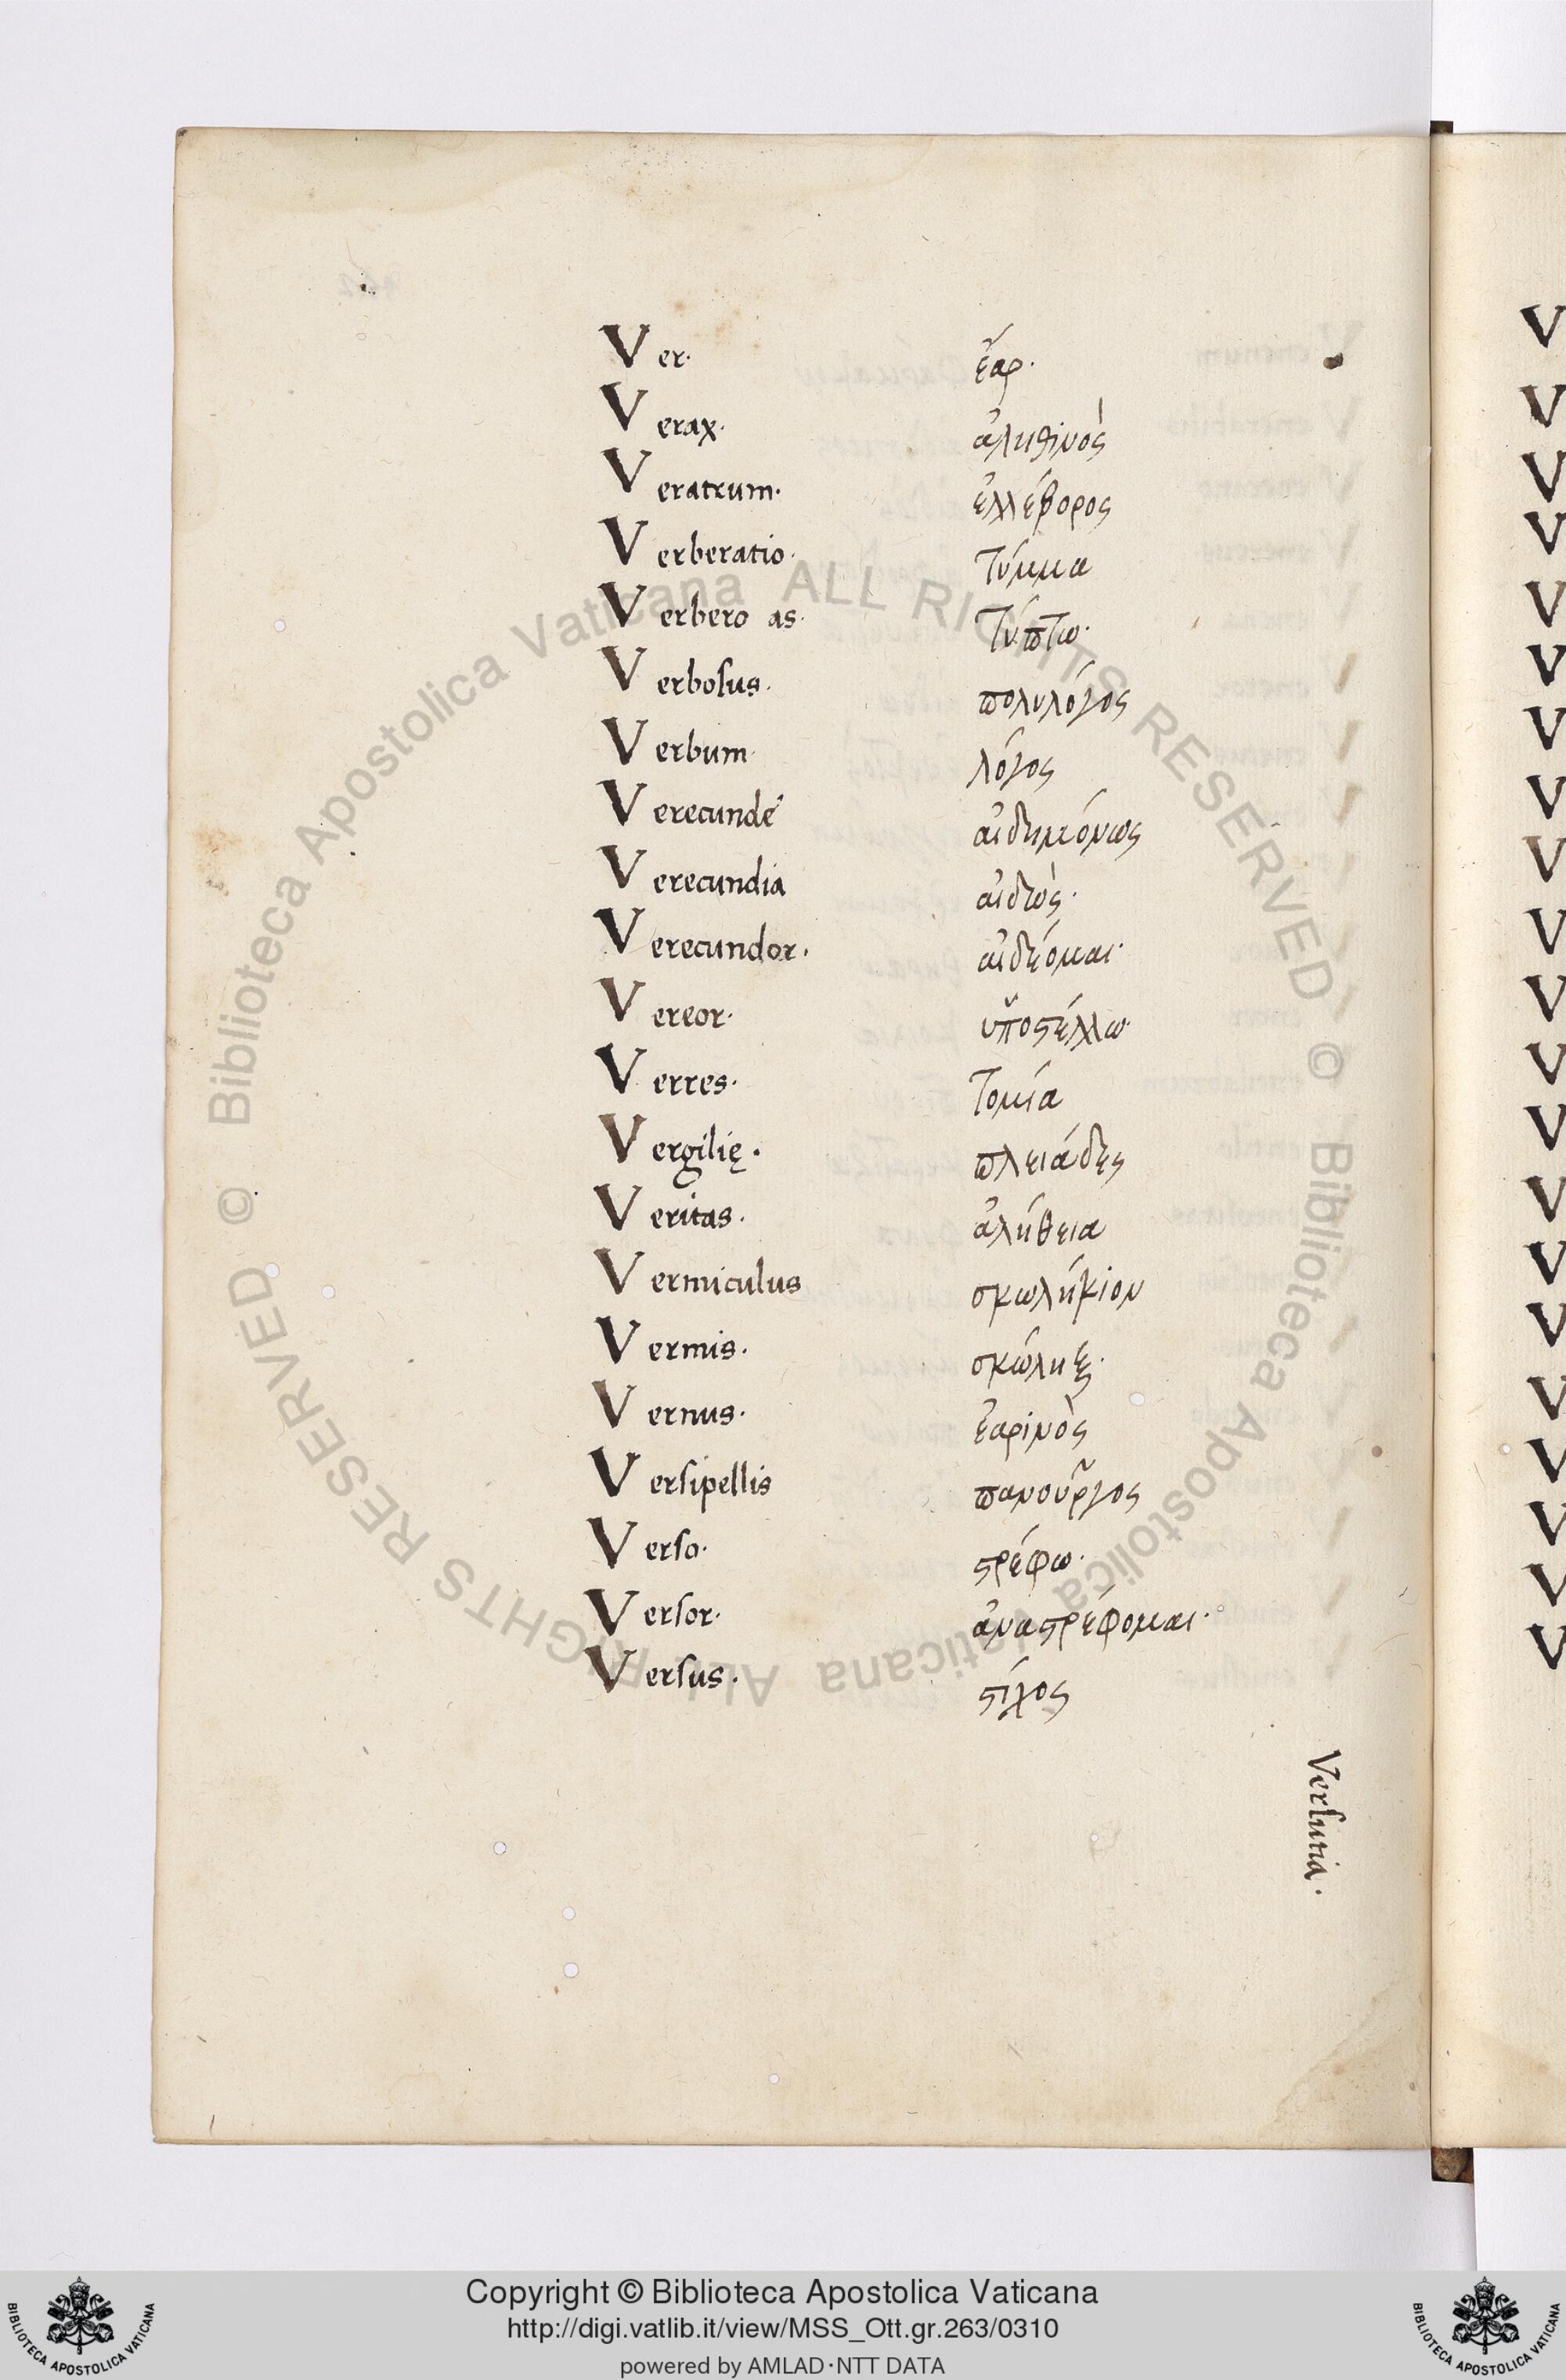 Ver. ἔαρ.
Verax. ἀληθινὸς
Veratrum. ἑλλέβορος
Verberatio. τύμμα
Verbero as. τύπτω.
Verbosus. πολυλόγος
Verbum λόγος
Verecunde αἰδημόνως
Verecundia αἰδὼς.
Verecundor. αἰδέομαι.
Vereor. ὑποστέλλω.
Verres. τομία
Vergilię. πλειάδες
Veritas. ἀλήθεια
Vermiculus σκωλήκιον
Vermis. σκώληξ.
Vernus. ἐαρινὸς
Versipellis πανοῦργος
Verso. στρέφω.
Versor. ἀναστρέφομαι.
Versus. στίχος
Versutia.
© Biblioteca Apostolica Vaticana ALL RIGHTS RESERVED
© Biblioteca Apostolica Vaticana ALL RIGHTS RESERVED
Copyright © Biblioteca Apostolica Vaticana
http://digi.vatlib.it/view/MSS_Ott.gr.263/0310
powered by AMLAD·NTT DATA
BIBLIOTECA APOSTOLICA VATICANA
BIBLIOTECA APOSTOLICA VATICANA